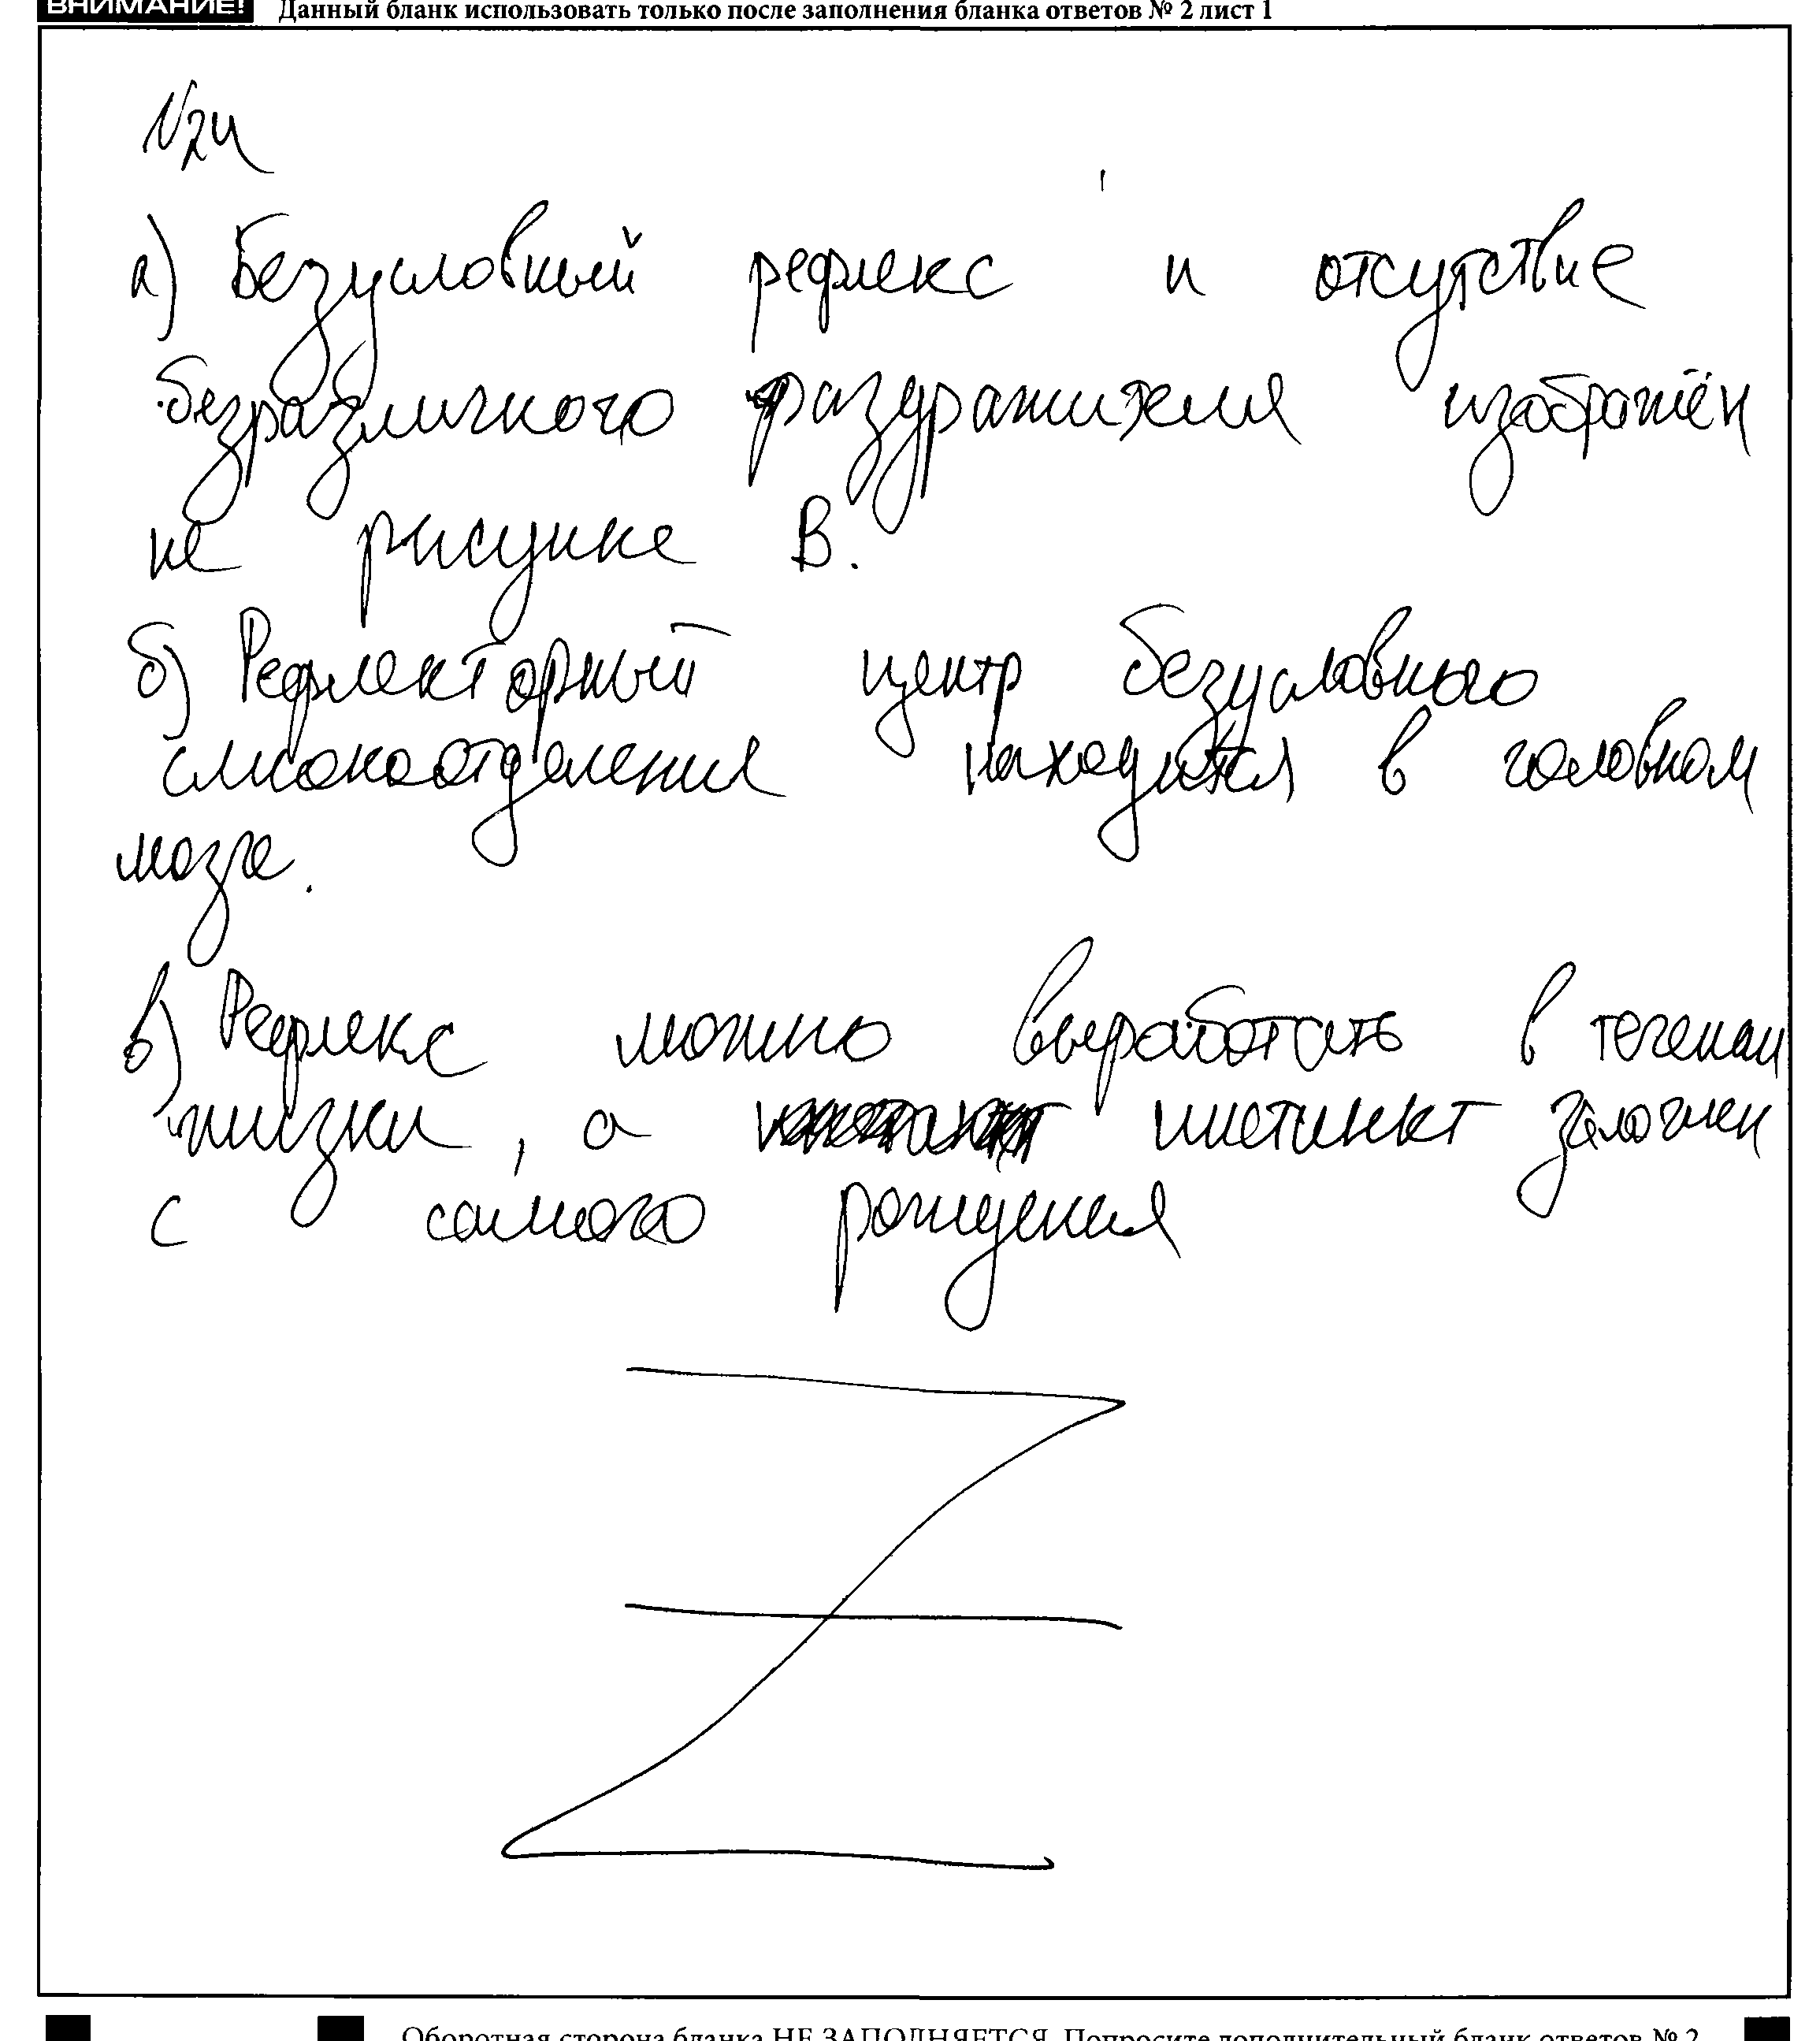 ВНИМАНИЕ! Данный бланк использовать только после заполнения бланка ответов № 2 лист 1
N24
а) Безусловный рефлекс и отсутствие
безразличного раздражителя изображён
не рисунке В.
б) Рефлекторный центр безусловного
слюноотделения находится в головном
мозге.
в) Рефлекс можно выработать в течении
жизни, а инстинкт заложен
с самого рождения
Оборотная сторона бланка НЕ ЗАПОЛНЯЕТСЯ. Попросите дополнительный бланк ответов № 2